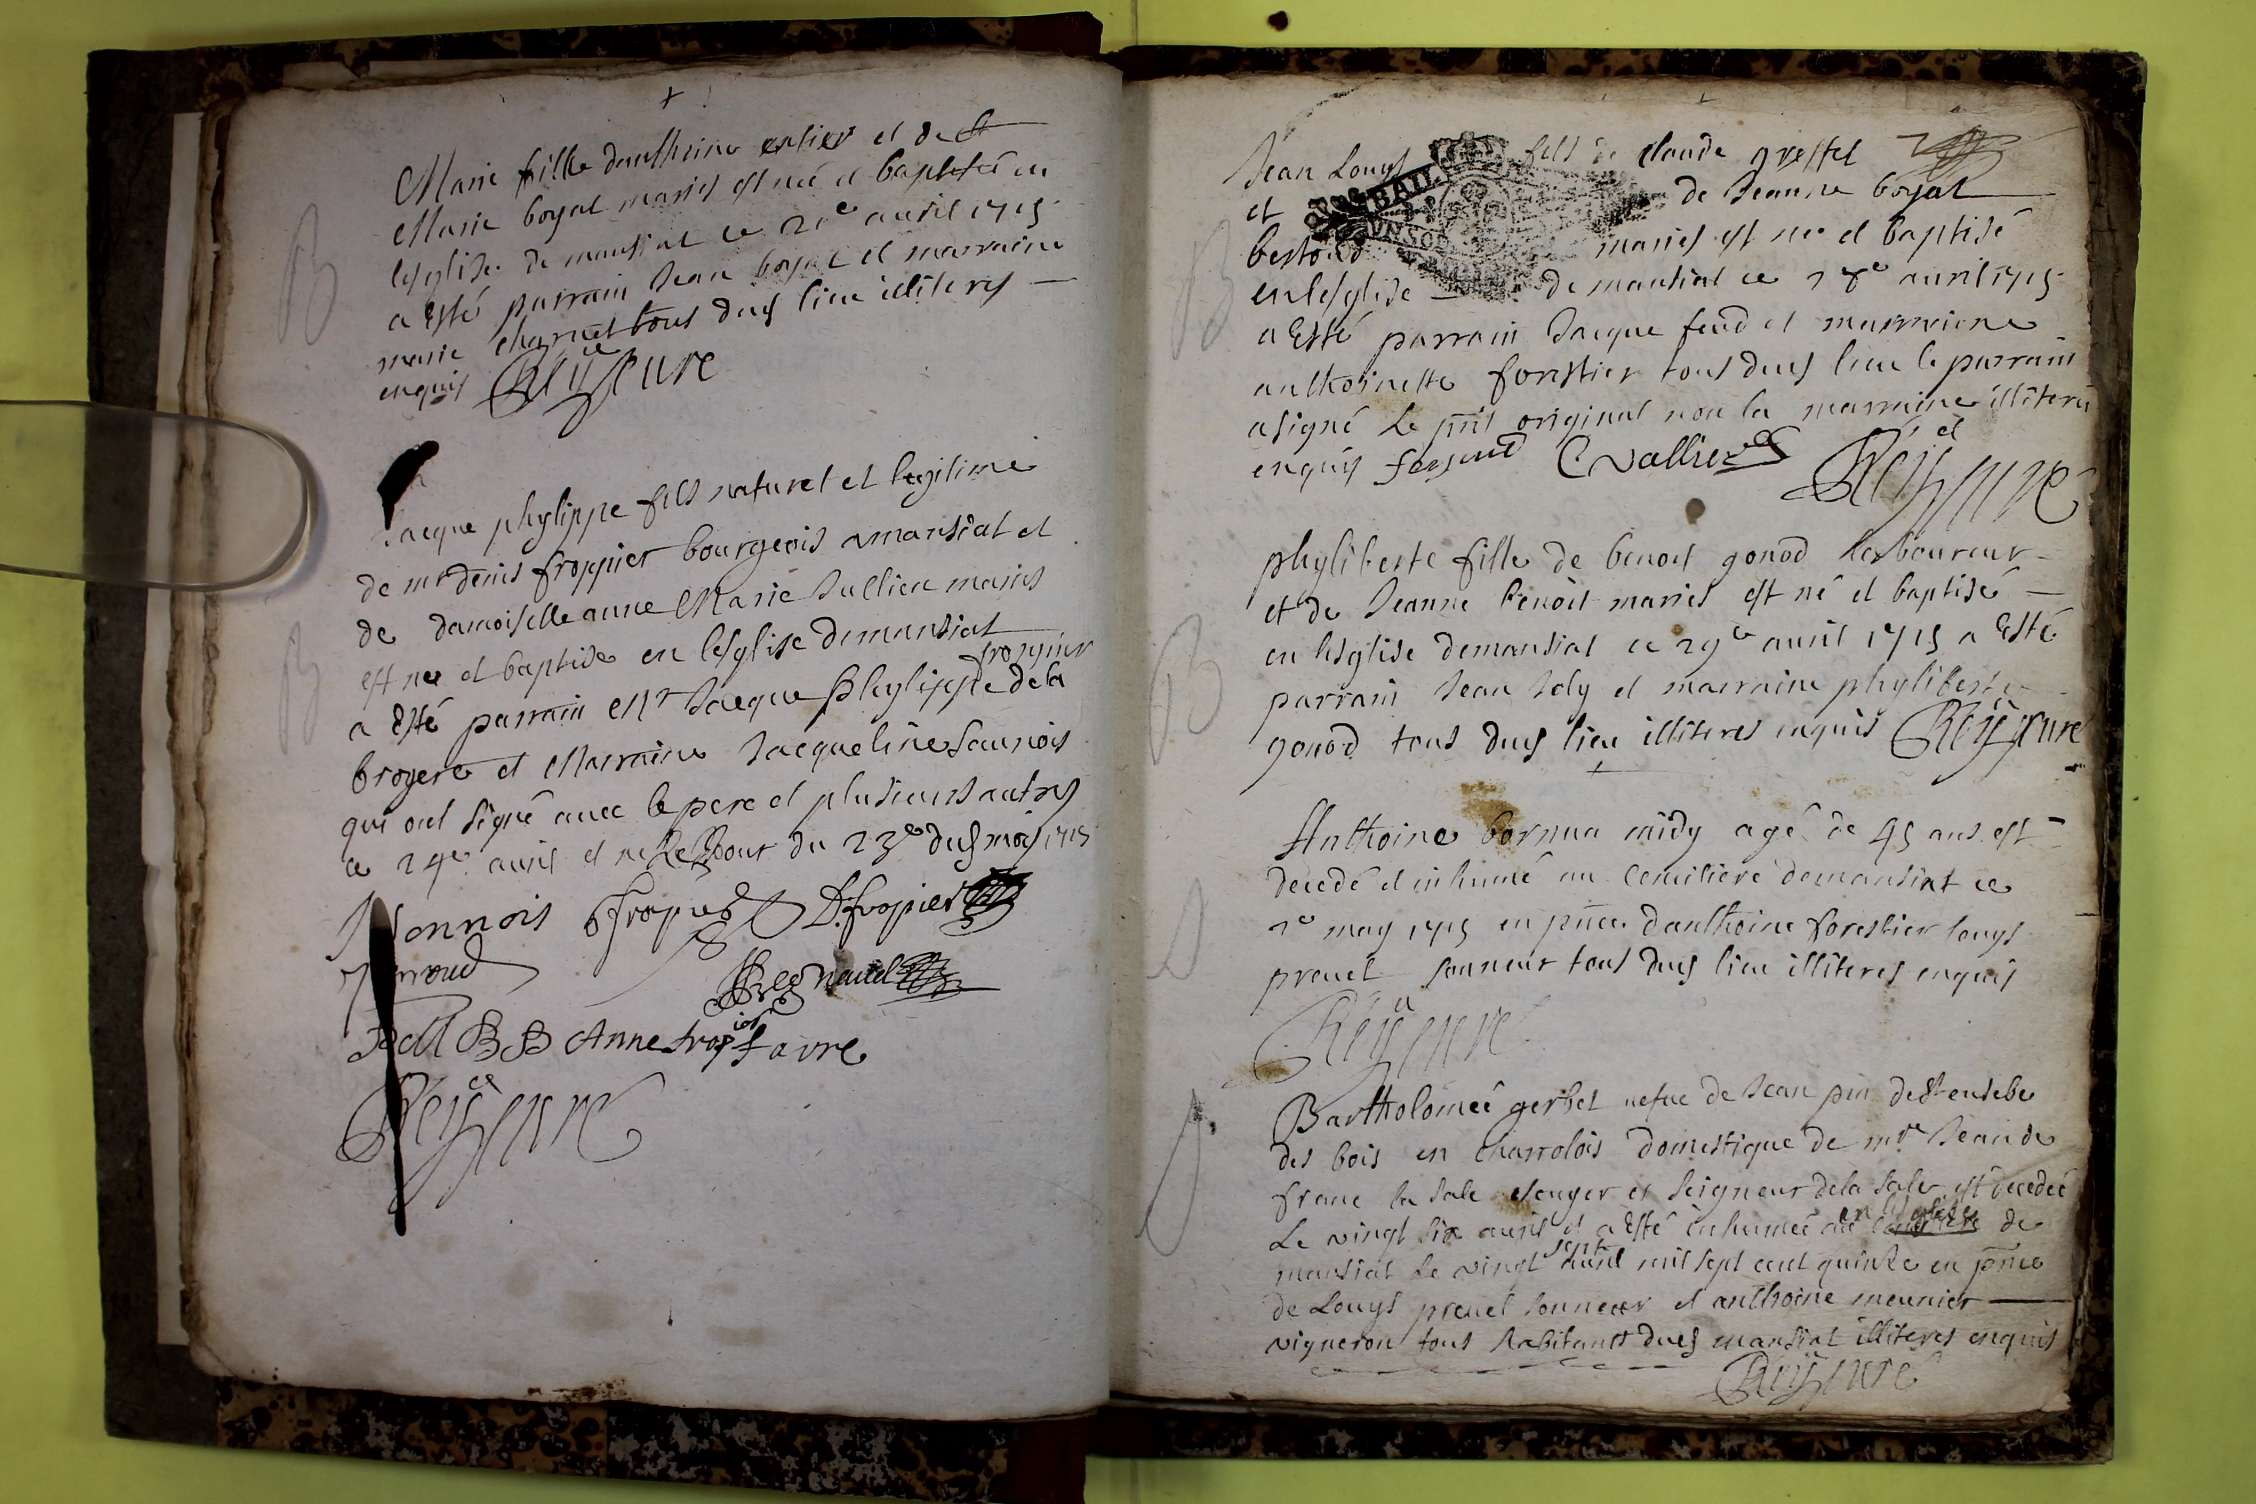 Marie fille danthoine et de
Marie boyat mariés est née et baptisé en
lesglise de mansiat ce 21e avril 1715
a Esté parrain Jean boyat et marraine
marie charnet tous duds lieu illiteres
enquis Reyssure
Jacque phylippe fils naturel et legitime
de mr denis froppier bourgeois a mansiat et
de damoiselle anne Marie Jullien mariés
est nee et baptise en lesglise de mansiat
froppier
a Esté parrain Mr Jacque phylippe de la
broyere et Marraine Jacqueline Saunois
qui ont signé avec le pere et plusieurs autres
ce 24e avril et ne le jour du 23e duds mois 1715
fropier D. fropier
Regnaud
B B Anne fropier favre
Reyssure
Jean Louys fils de claude greffet
et de Jeanne boyat
mariés est ne et baptisé
en lesglise de mansiat ce 28e avril 1715
a Esté parrain Jacque feud et marraine
anthoinette forestier tous duds lieu le parrain
a signé Le pnt original non la marraine illiteré
enquis C vallier
Reyssure
phyliberte fille de benoit gonod laboureur
et de Jeanne benoit mariés est né et baptisé
en lesglise de mansiat ce 29e avril 1715 a Esté
parrain Jean Joly et marraine phyliberte
gonod tous duds lieu illiteres enquis Reyssure
Anthoine midy agé de 45 ans est
decedé et inhumé au cemitiere de mansiat ce
2e may 1715 en pnce danthoine forestier louys
prevel sonneur tous duds lieu illiteres enquis
Reyssure
Bartholomée gerbet nefue de Jean pin de St eusebe
des bois en charrolois domestique de mre Jean de
franc la sale escuyer et seigneur de la sale est decedée
en lesglise
Le vingt six avril et a Esté inhumée au cemitiere de
sept
mansiat Le vingt avril mil sept cent quinze en pnce
de Louys prevel sonneur et anthoine meunier
vigneron tous habitants duds mansiat illiteres enquis
Reyssure